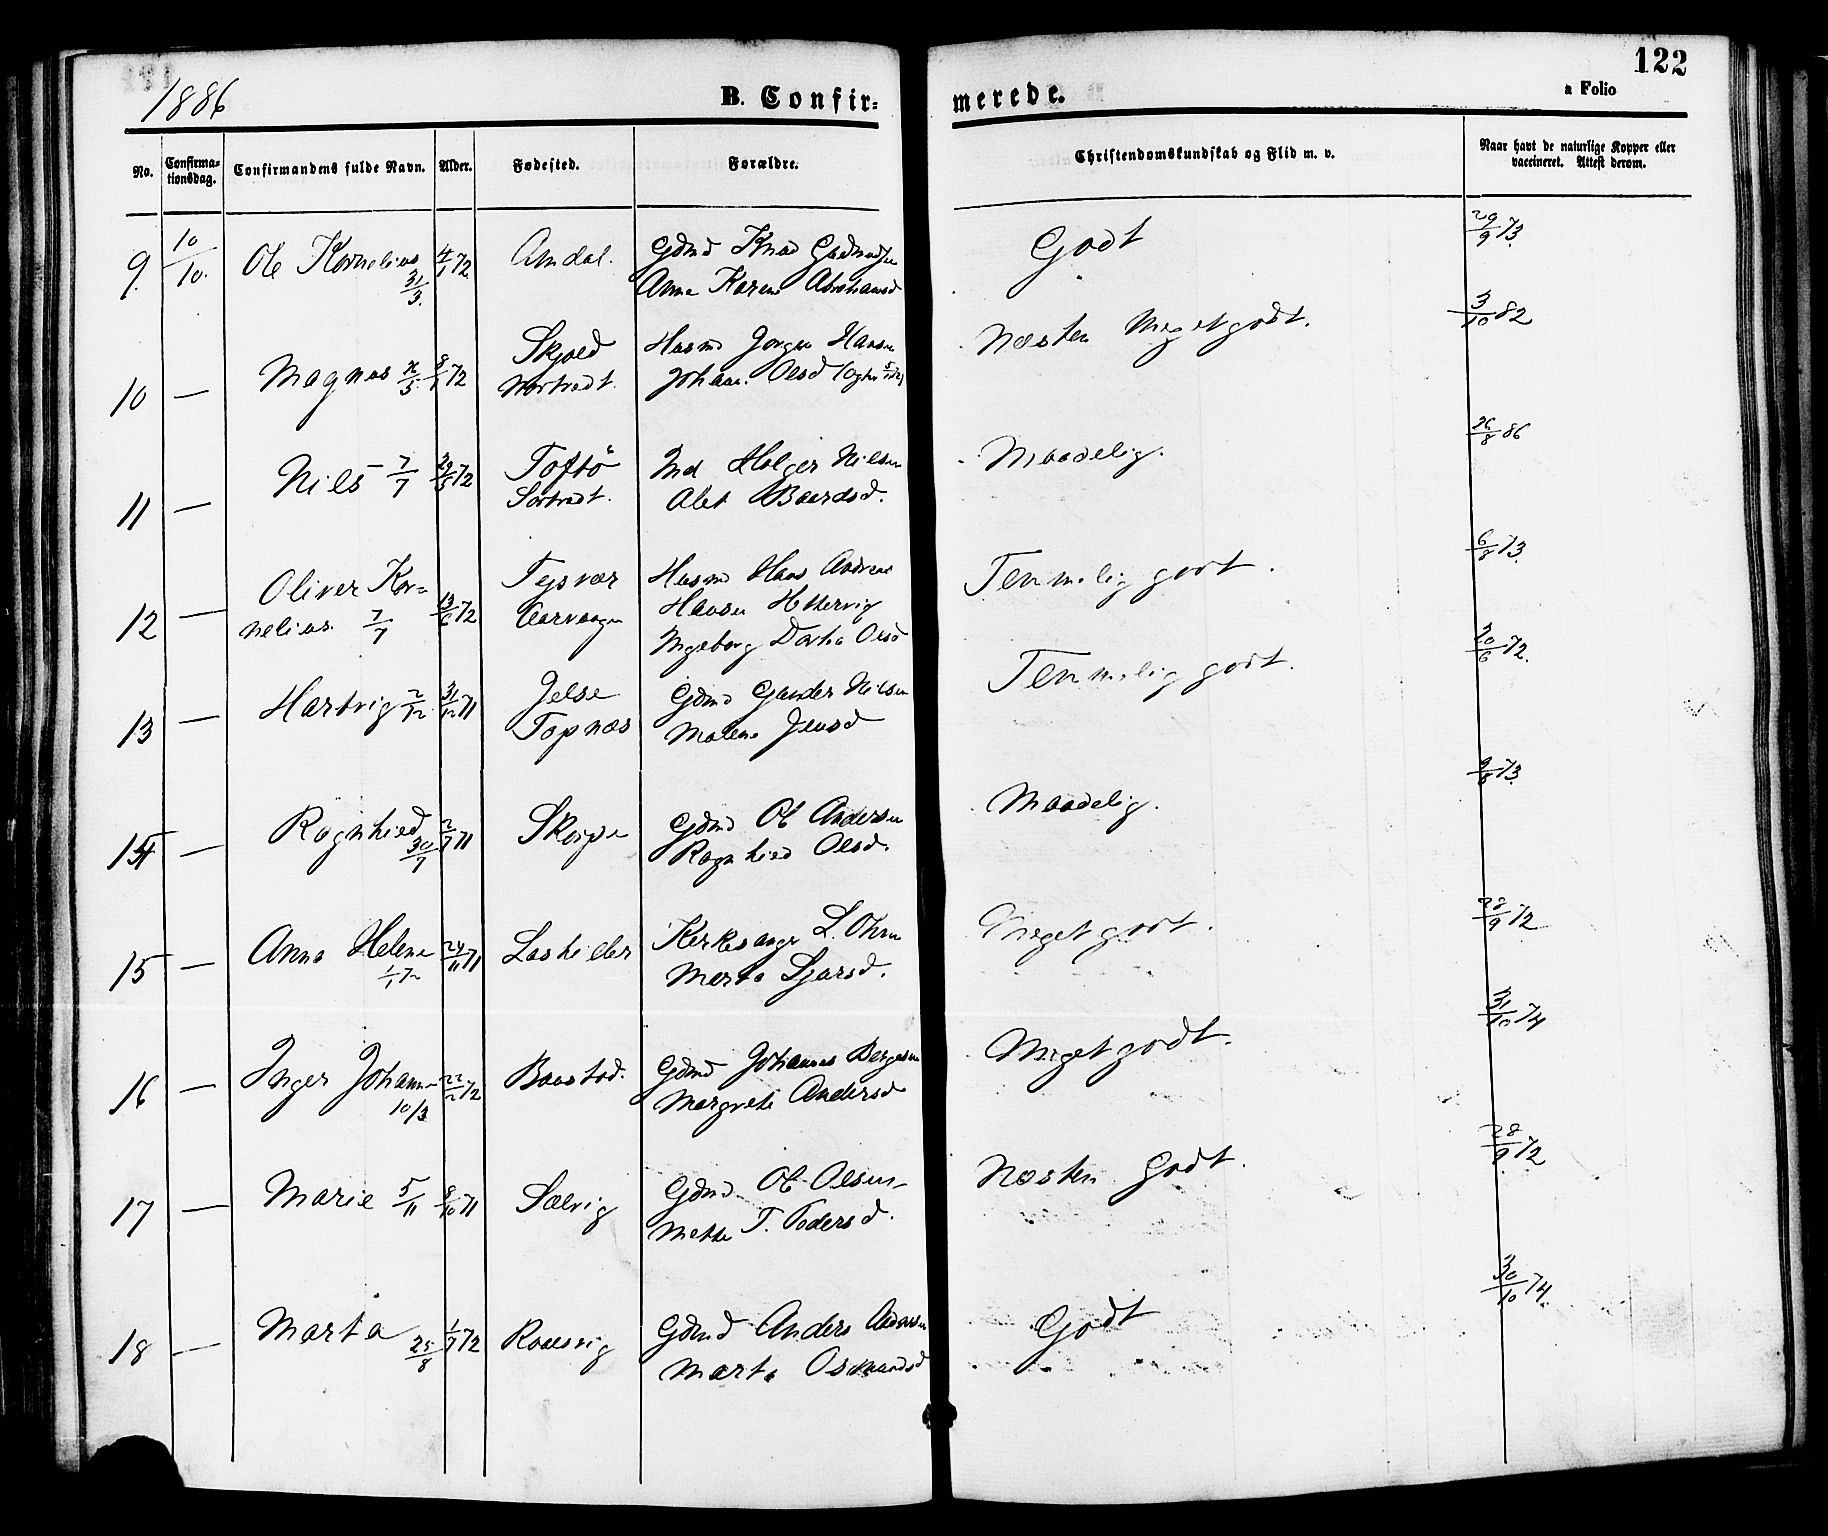 1886
B. Confir=
merede.
122
a Folio
No.
Confirma-
tionsdag.
Confirmandens fulde Navn.
Alder.
Fødested.
Forældre.
Christendomskundskab og Flid m. v.
Naar havt de naturlige Kopper eller
vaccineret. Attest derom.
9. 10/10. Ole Kornelius 4/1 72 Amdal. Gdmd Knud Gudmuds
31/3. Anna Karene Abrahamsd
Godt 29/9 73
10 — Magnus 8/1 72 Skjold Husmd Jørgen Hansen
Johan. Olsd
Næsten Meget godt. 3/10 82
11 — Nils 7/7 72 Toftö Holger Nilsen
Sørtredt. Alet Baardsd.
Maadelig. 26/8 86
12 — Oliver Kor= 13/6 72 Tysvær Husmd Hans Andreas
nelius. 7/7 Aarvaagen Hansen Hettervig
Ingeborg Dortea Olsd
Temmelig godt. 6/8 73
13 — Hartvig 2/12 31/12 71 Jelse Gdmd Gunder Nilsen
Topnæs Malene Jensd
Temmelig godt. 20/6 72.
14 — Ragnhild 2/7 71 Skorpe Gdmd Ole Andersen
30/7 Ragnhild Olsd.
Maadelig. 9/8 73
15 — Anna Helene 24/11 71 Lashiller Kirkesanger L. Ohrn
1/1 72 Marta Sjursd.
Meget godt. 28/9 72
16 — Inger Johanne 22/2 72 Baustad. Gdmd Johannes Bergesen
10/3 Margrete Andersd
Meget godt. 31/10 74
17 — Marie 5/11 8/10 71 Sælvig Gdmd Ole Olsen
Mette T. Pedersd.
Næsten Godt. 28/9 72
18 — Marta 1/7 72 Gdmd Anders Andersen
25/8 Marta Osmundsd
Godt 30/10 74.